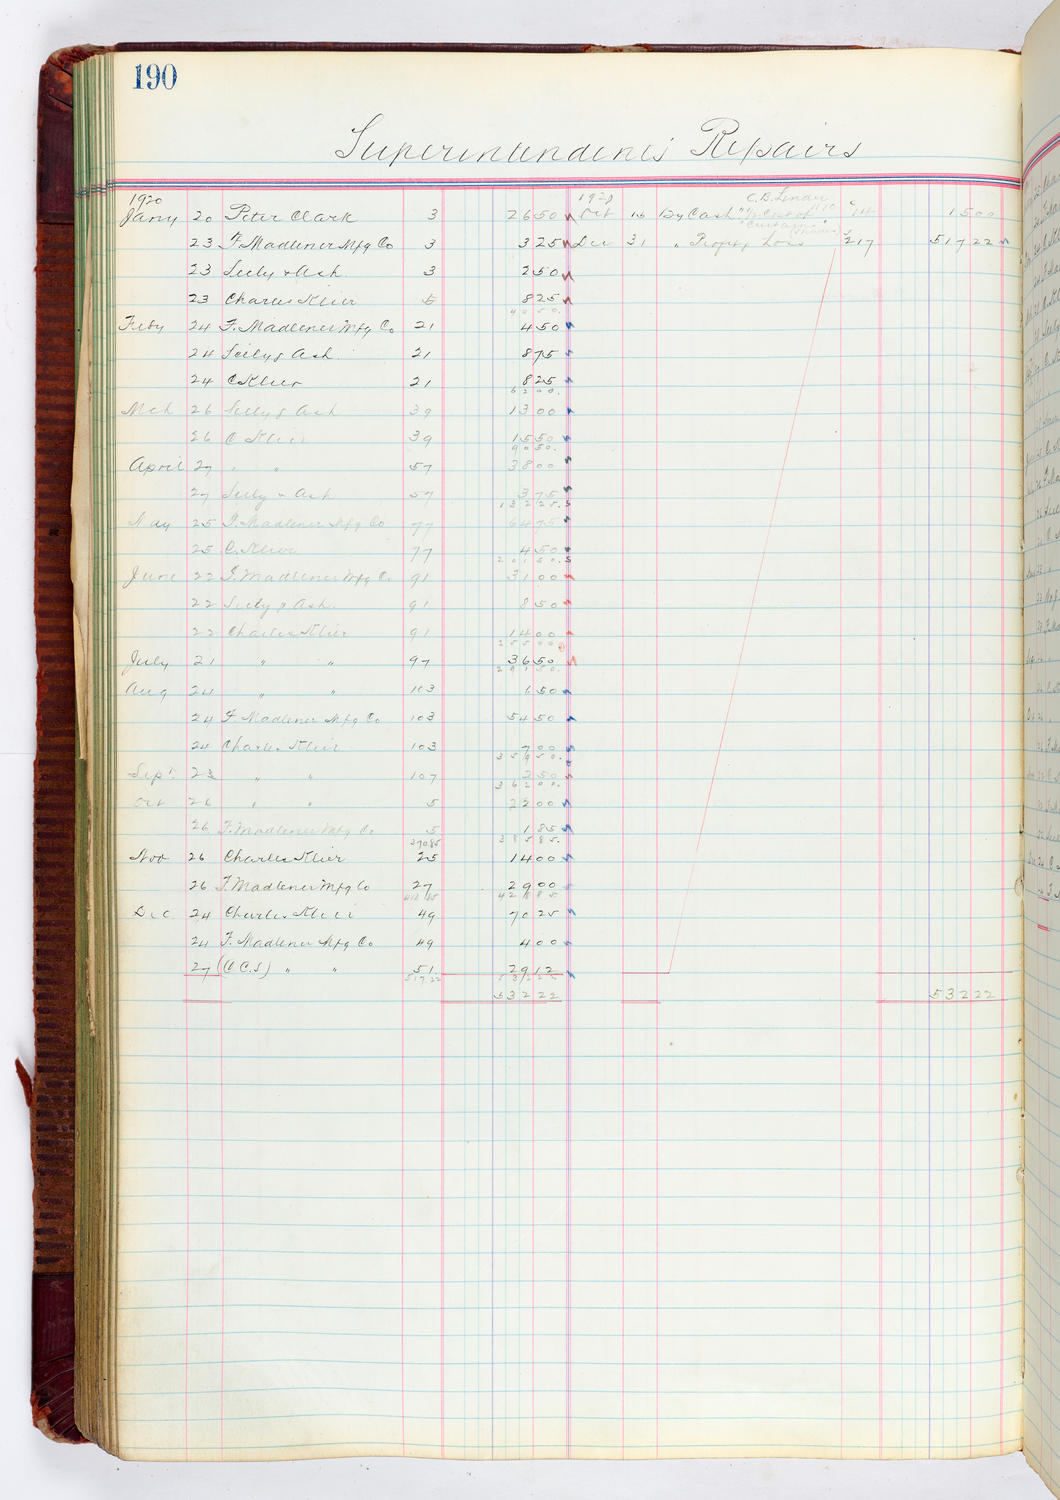 190
Superintendent's Repairs
1920
Jany 20 Peter Clark 3 26 50
23 F. Madlener Mfg Co 3 3 25
23 Seely & Ash 3 2 50
23 Charles Klier 5 8 25
40 50.
Feby 24 F. Madlener Mfg Co 21 4 50
24 Seely & Ash 21 8 75
24 C Klier 21 8 25
62 00.
Mch 26 Seely & Ash 39 13 00
26 C Klier 39 15 50
90 50.
April 27 " " 57 38 00
27 Seely & Ash 57 3 75
132 25.
May 25 F. Madlener Mfg Co 77 64 75
25 C. Klier 77 4 50
201 50.
June 22 F. Madlener Mfg Co 91 31 00
22 Seely & Ash. 91 8 50
22 Charles Klier 91 14 00
255 00
July 21 " " 97 36 50
291 50.
Aug 24 " " 103 6 50
24 F Madlener Mfg Co 103 54 50
24 Charles Klier 103 7 00
359 50.
Sept. 23 " " 107 2 50
362 00.
Oct 26 " " 5 22 00
26 F. Madlener Mfg Co 5 1 85
370.85 385 85.
Nov 26 Charles Klier 25 14 00
26 F. Madlener Mfg Co 27 29 00
413 85 428 85
Dec 24 Charles Klier 49 70 25
24 F. Madlener Mfg Co 49 4 00
27 (C C.S) " " 51. 29 12
517.22 532 22
532 22
1920
C. B. Linder
Oct 16 By Cash 114 15 00
"Curtain"
Dec 31 " Profit & Loss 217 517 22
532 22